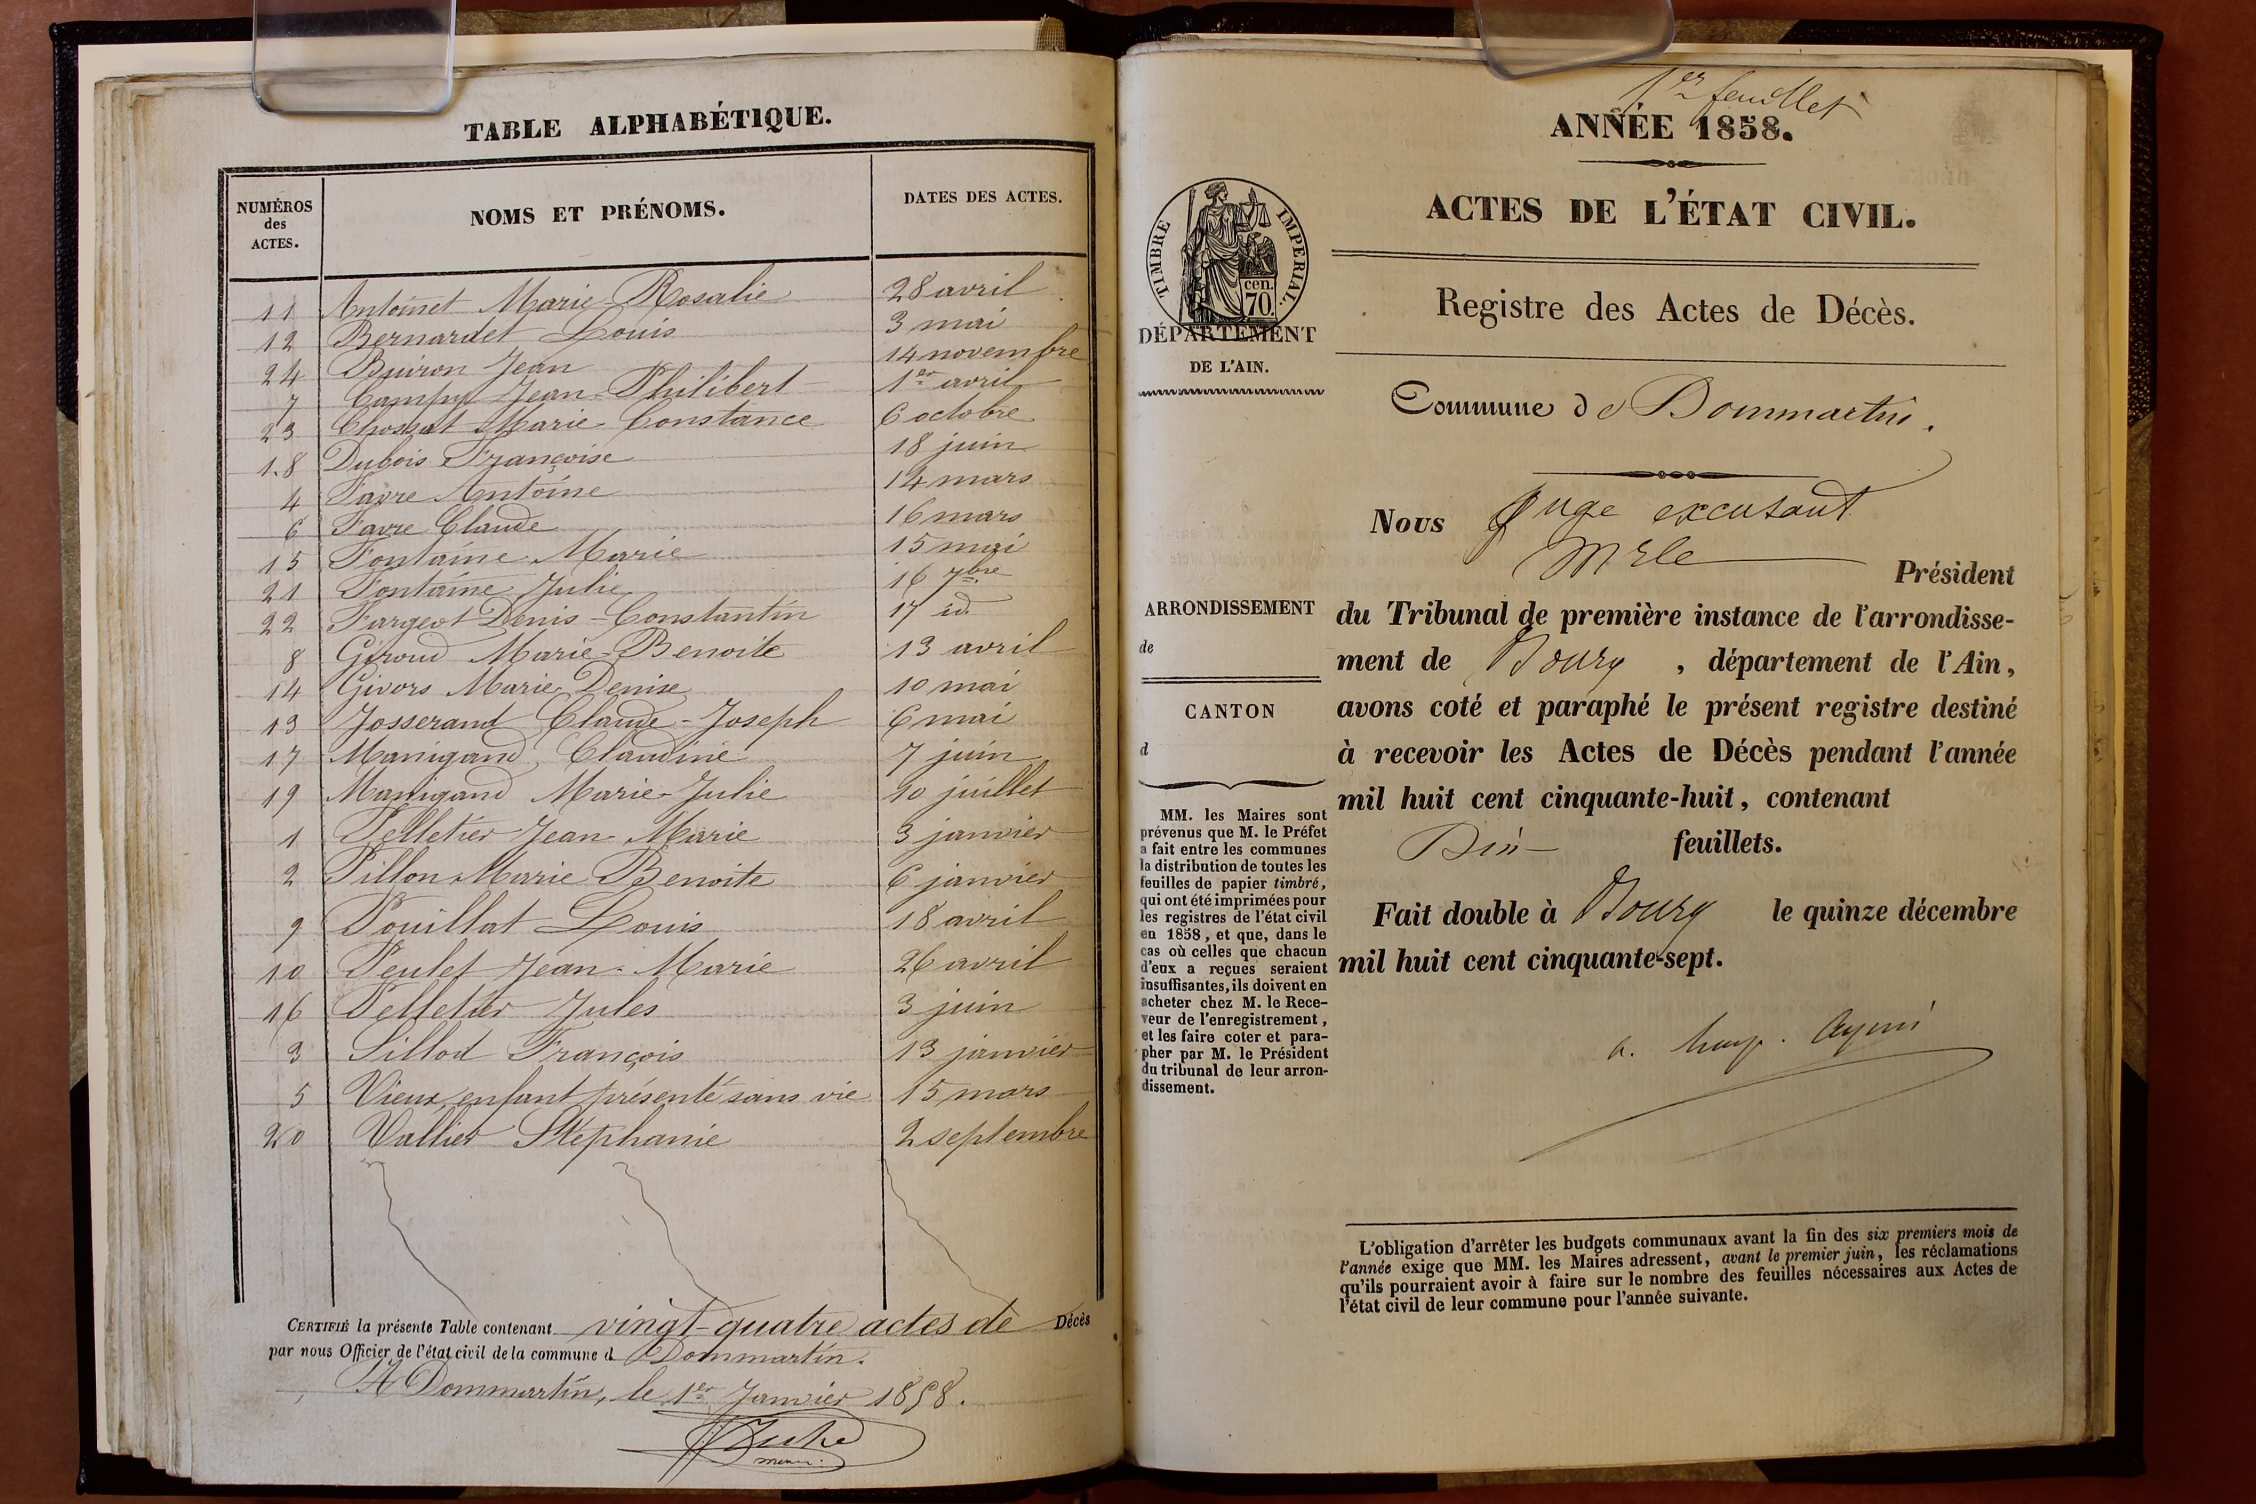 TABLE ALPHABÉTIQUE.
NUMÉROS
des
ACTES.
NOMS ET PRÉNOMS.
DATES DES ACTES.
11 Antoinet Marie-Rosalie 28 avril
12 Bernardet Louis 3 mai
24 Buiron Jean 14 novembre
7 Campy Jean-Philibert 1er avril
23 Chossat Marie-Constance 6 octobre
18 Dubois Françoise 18 juin
4 Favre Antoine 14 mars
6 Favre Claude 16 mars
15 Fontaine Marie 15 mai
21 Fontaine Julie 16 7bre
22 Fargeot Denis-Constantin 17 id.
8 Giroud Marie-Benoite 13 avril
14 Givors Marie Denise 10 mai
13 Josserand Claude-Joseph 6 mai
17 Manigand Claudine 7 juin
19 Manigand Marie-Julie 20 juillet
1 Pelletier Jean-Marie 3 janvier
2 Pillon Marie Benoite 6 janvier
9 Pouillat Louis 18 avril
10 Peulet Jean-Marie 26 avril
16 Pelletier Jules 3 juin
3 Sillod François 13 janvier
5 Vieux, enfant présenté sans vie 15 mars
20 Vallier Stéphanie 2 septembre
CERTIFIÉ la présente Table contenant vingt-quatre actes de Décès
par nous Officier de l'état civil de la commune d Dommartin.
A Dommartin, le 1er Janvier 1858.
1er feuillet
ANNÉE 1858.
ACTES DE L'ÉTAT CIVIL.
TIMBRE IMPERIAL.
cen.
70.
DÉPARTEMENT
DE L'AIN.
Registre des Actes de Décès.
Commune de Dommartin.
Nous Juge excusant
Mr le Président
ARRONDISSEMENT
de
CANTON
d
du Tribunal de première instance de l'arrondisse-
ment de Bourg, département de l'Ain,
avons coté et paraphé le présent registre destiné
à recevoir les Actes de Décès pendant l'année
mil huit cent cinquante-huit, contenant
feuillets.
Fait double à Bourg le quinze décembre
mil huit cent cinquante-sept.
MM. les Maires sont
prévenus que M. le Préfet
a fait entre les communes
la distribution de toutes les
feuilles de papier timbré,
qui ont été imprimées pour
les registres de l'état civil
en 1858, et que, dans le
cas où celles que chacun
d'eux a reçues seraient
insuffisantes, ils doivent en
acheter chez M. le Rece-
veur de l'enregistrement,
et les faire coter et para-
pher par M. le Président
du tribunal de leur arron-
dissement.
L'obligation d'arrêter les budgets communaux avant la fin des six premiers mois de
l'année exige que MM. les Maires adressent, avant le premier juin, les réclamations
qu'ils pourraient avoir à faire sur le nombre des feuilles nécessaires aux Actes de
l'état civil de leur commune pour l'année suivante.